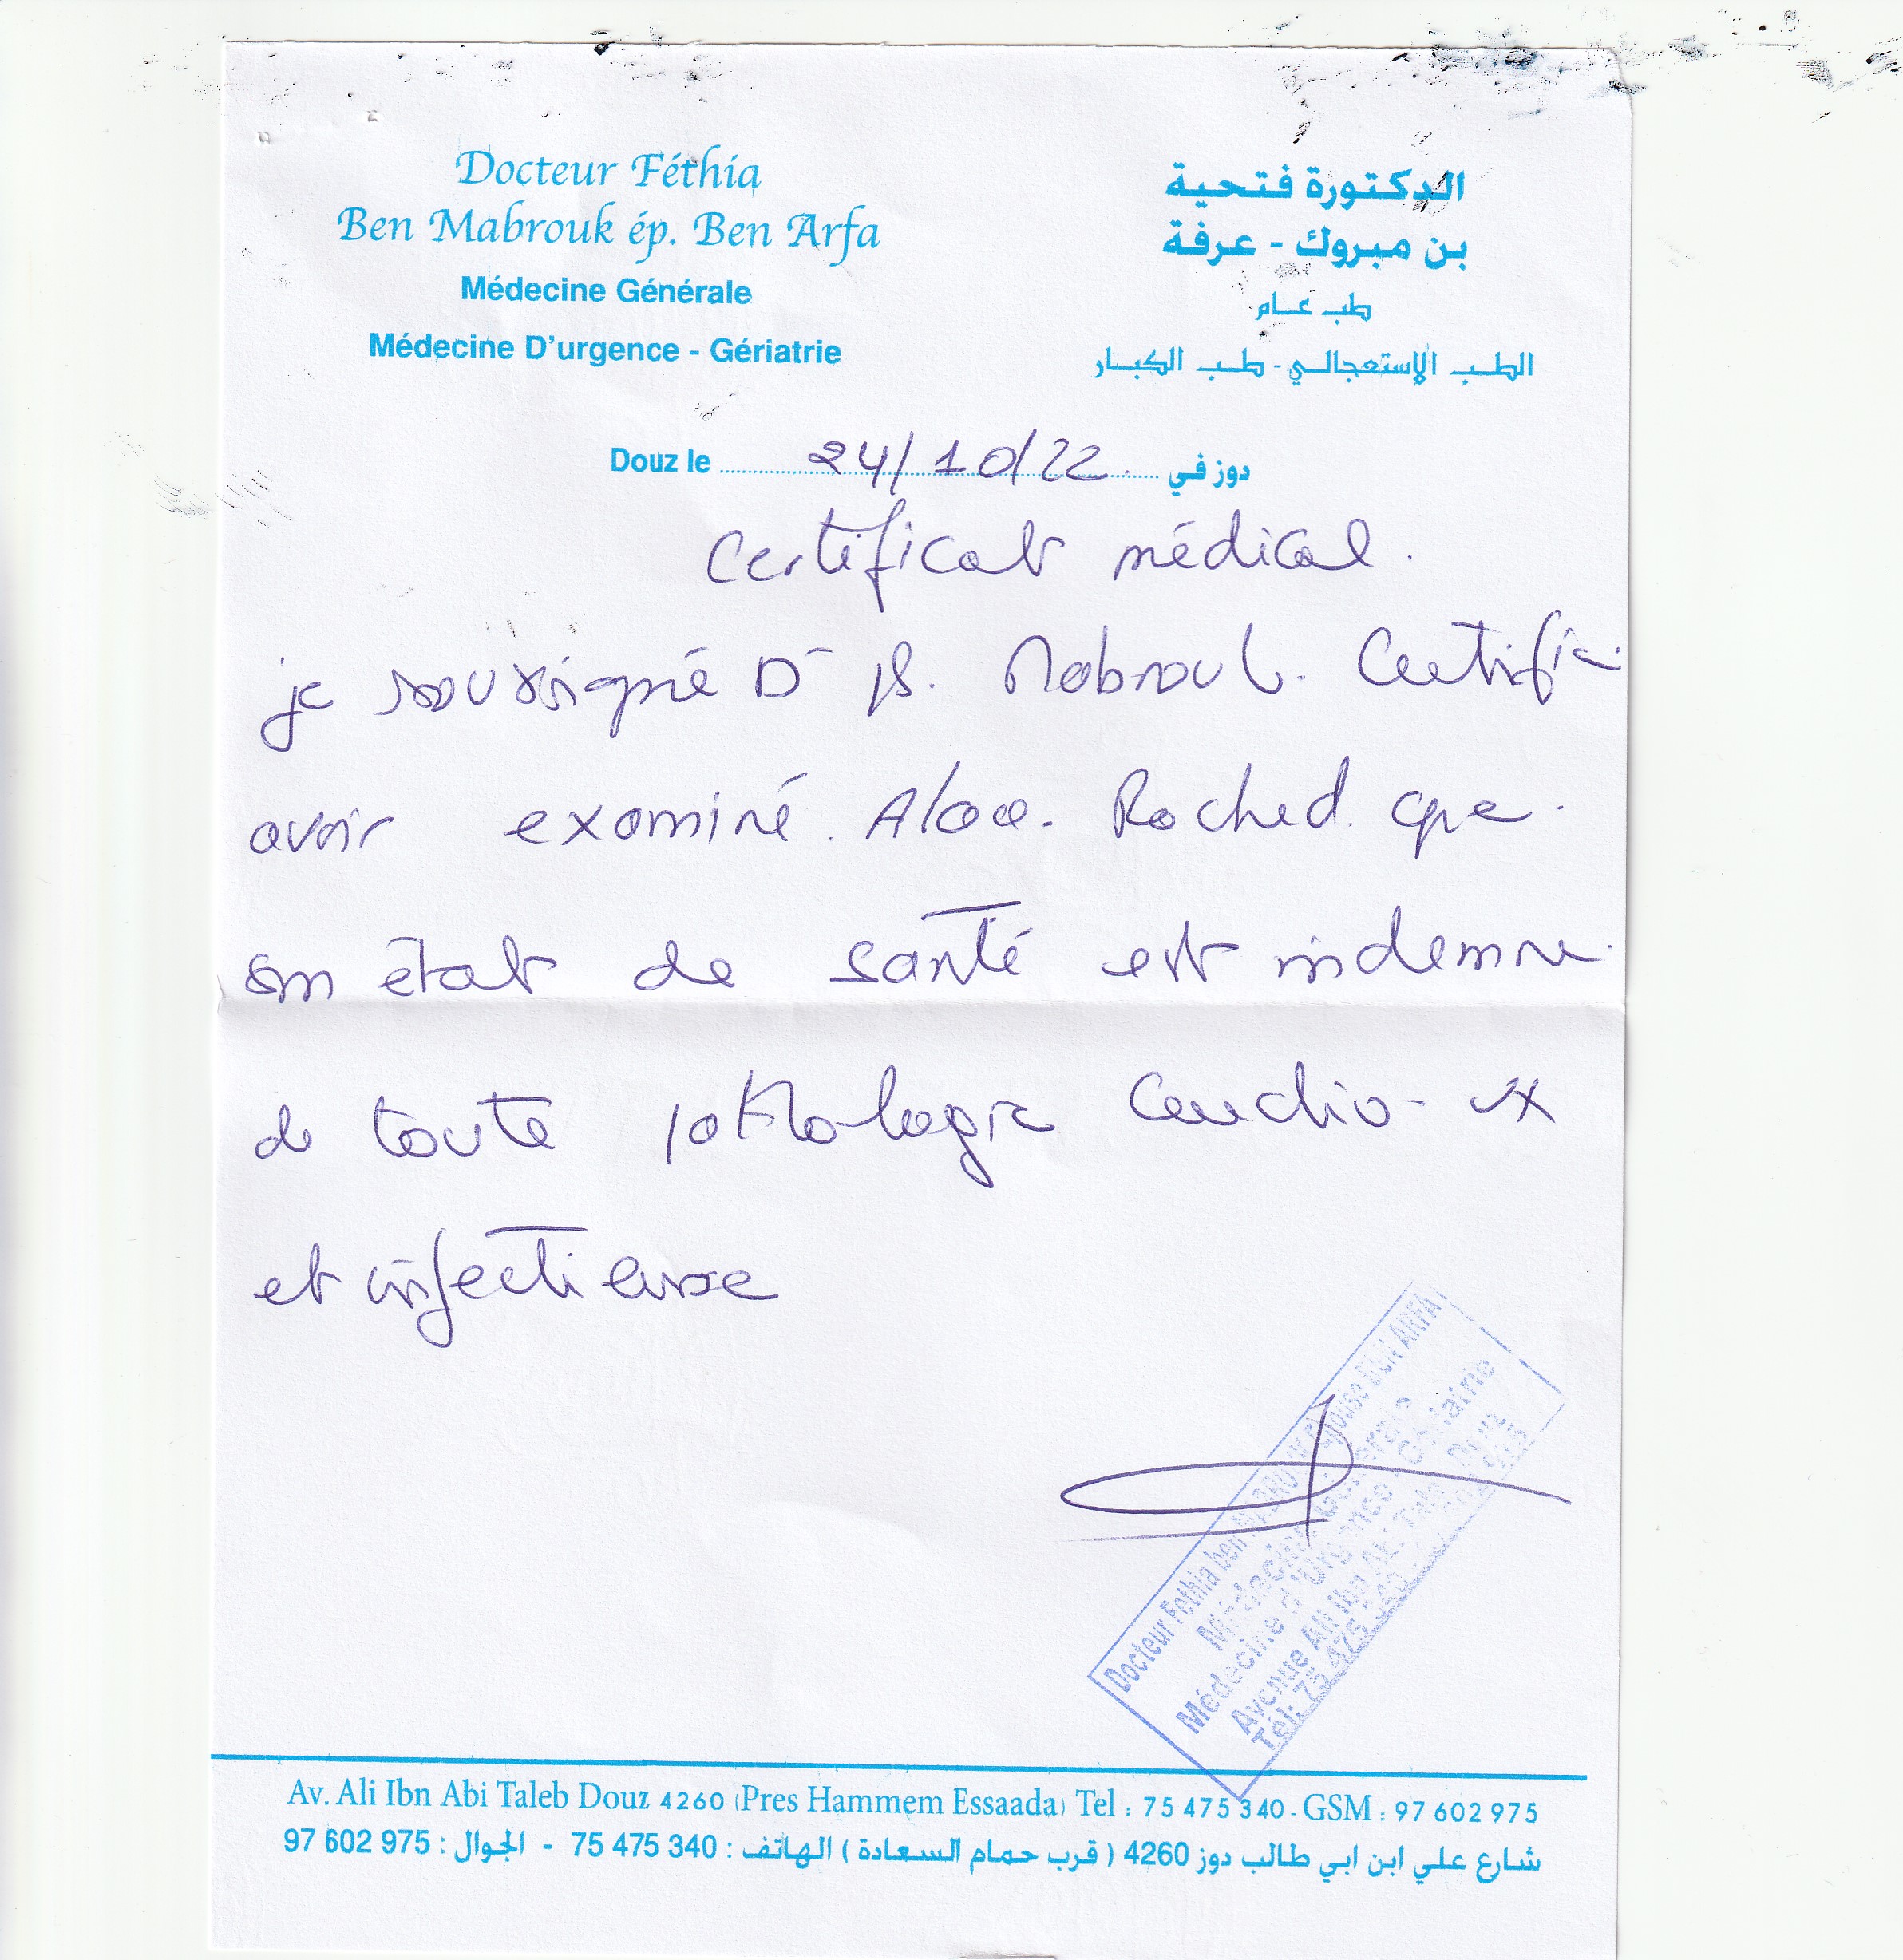 Docteur Féthia
Ben Mabrouk ép. Ben Arfa
Médecine Générale
Médecine D'urgence - Gériatrie
الدكتورة فتحية
بن مبروك - عرفة
طب عام
الطب الإستعجالي - طب الكبار
Douz le 24/10/22 دوز في
Certificat médical.
je soussigné Dr B. Mabrouk. Certifie
avoir examiné. Alaa. Roched. que
son état de santé est indemne
de toute pathologie Cardio-
et infectieuse
Docteur Fethia ben MABROUK Epouse BEN ARFA
Médecine Générale
Médecine d'Urgence - Gériatrie
Avenue Ali Ibn Abi Taleb Douz
Tél: 75 475 340
Av. Ali Ibn Abi Taleb Douz 4260 (Pres Hammem Essaada) Tel : 75 475 340 - GSM : 97 602 975
شارع علي ابن ابي طالب دوز 4260 ( قرب حمام السعادة ) الهاتف : 340 475 75 - الجوال : 975 602 97